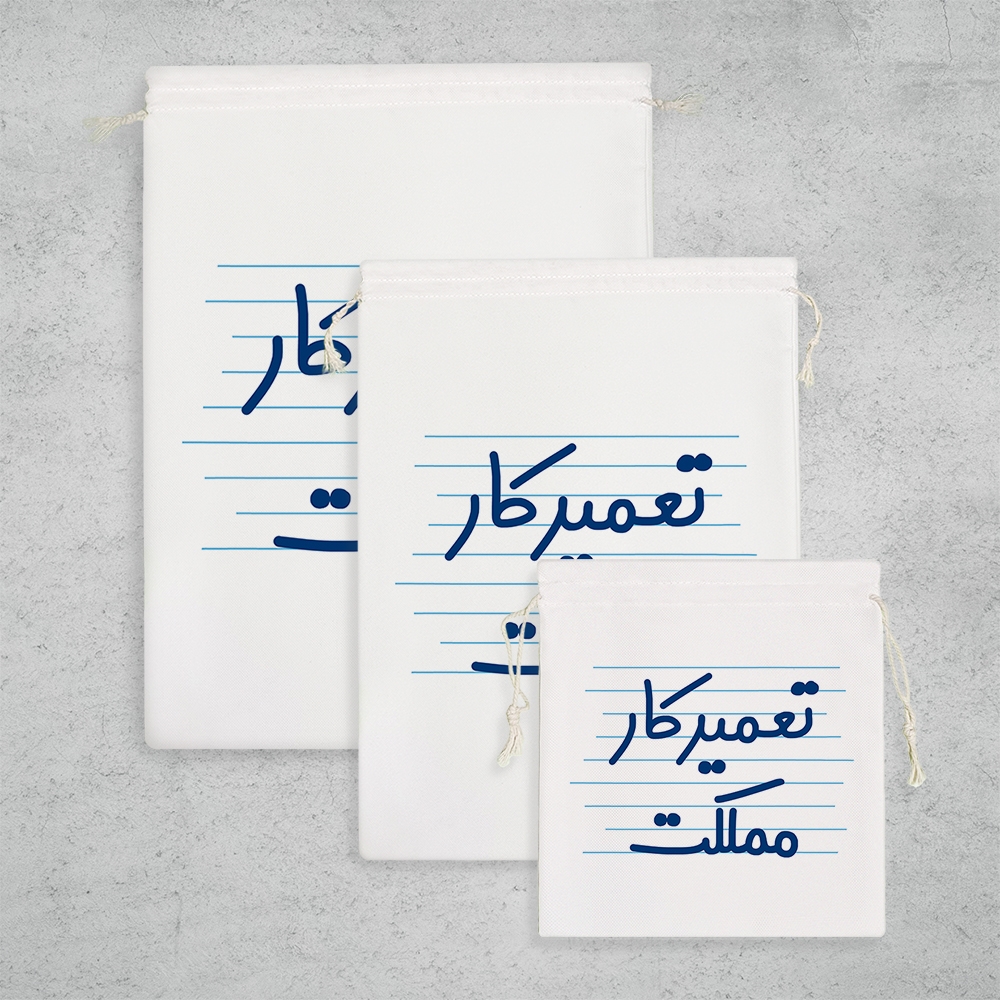 تعمیرکار
تعمیرکار
مملکت